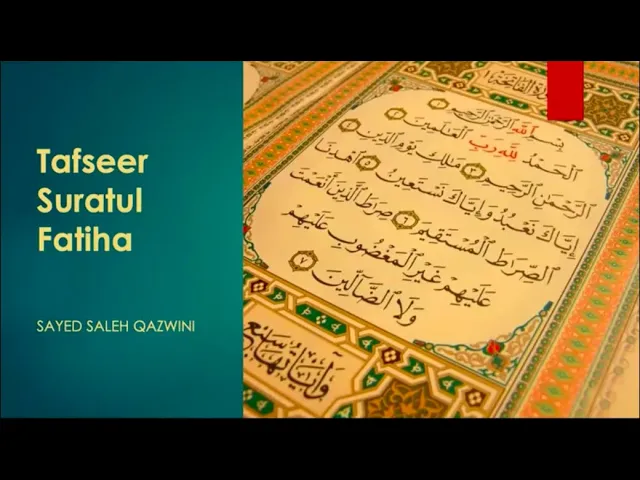 Tafseer
Suratul
Fatiha
SAYED SALEH QAZWINI
سُورَةُ الْفَاتِحَةِ
بِسْمِ ٱللَّهِ ٱلرَّحْمَٰنِ ٱلرَّحِيمِ ۝١
ٱلْحَمْدُ لِلَّهِ رَبِّ ٱلْعَٰلَمِينَ ۝٢
ٱلرَّحْمَٰنِ ٱلرَّحِيمِ ۝٣ مَٰلِكِ يَوْمِ ٱلدِّينِ ۝٤
إِيَّاكَ نَعْبُدُ وَإِيَّاكَ نَسْتَعِينُ ۝٥ ٱهْدِنَا
ٱلصِّرَٰطَ ٱلْمُسْتَقِيمَ ۝٦ صِرَٰطَ ٱلَّذِينَ أَنْعَمْتَ
عَلَيْهِمْ غَيْرِ ٱلْمَغْضُوبِ عَلَيْهِمْ
وَلَا ٱلضَّآلِّينَ ۝٧
وَآيَاتُهَا سَبْعٌ